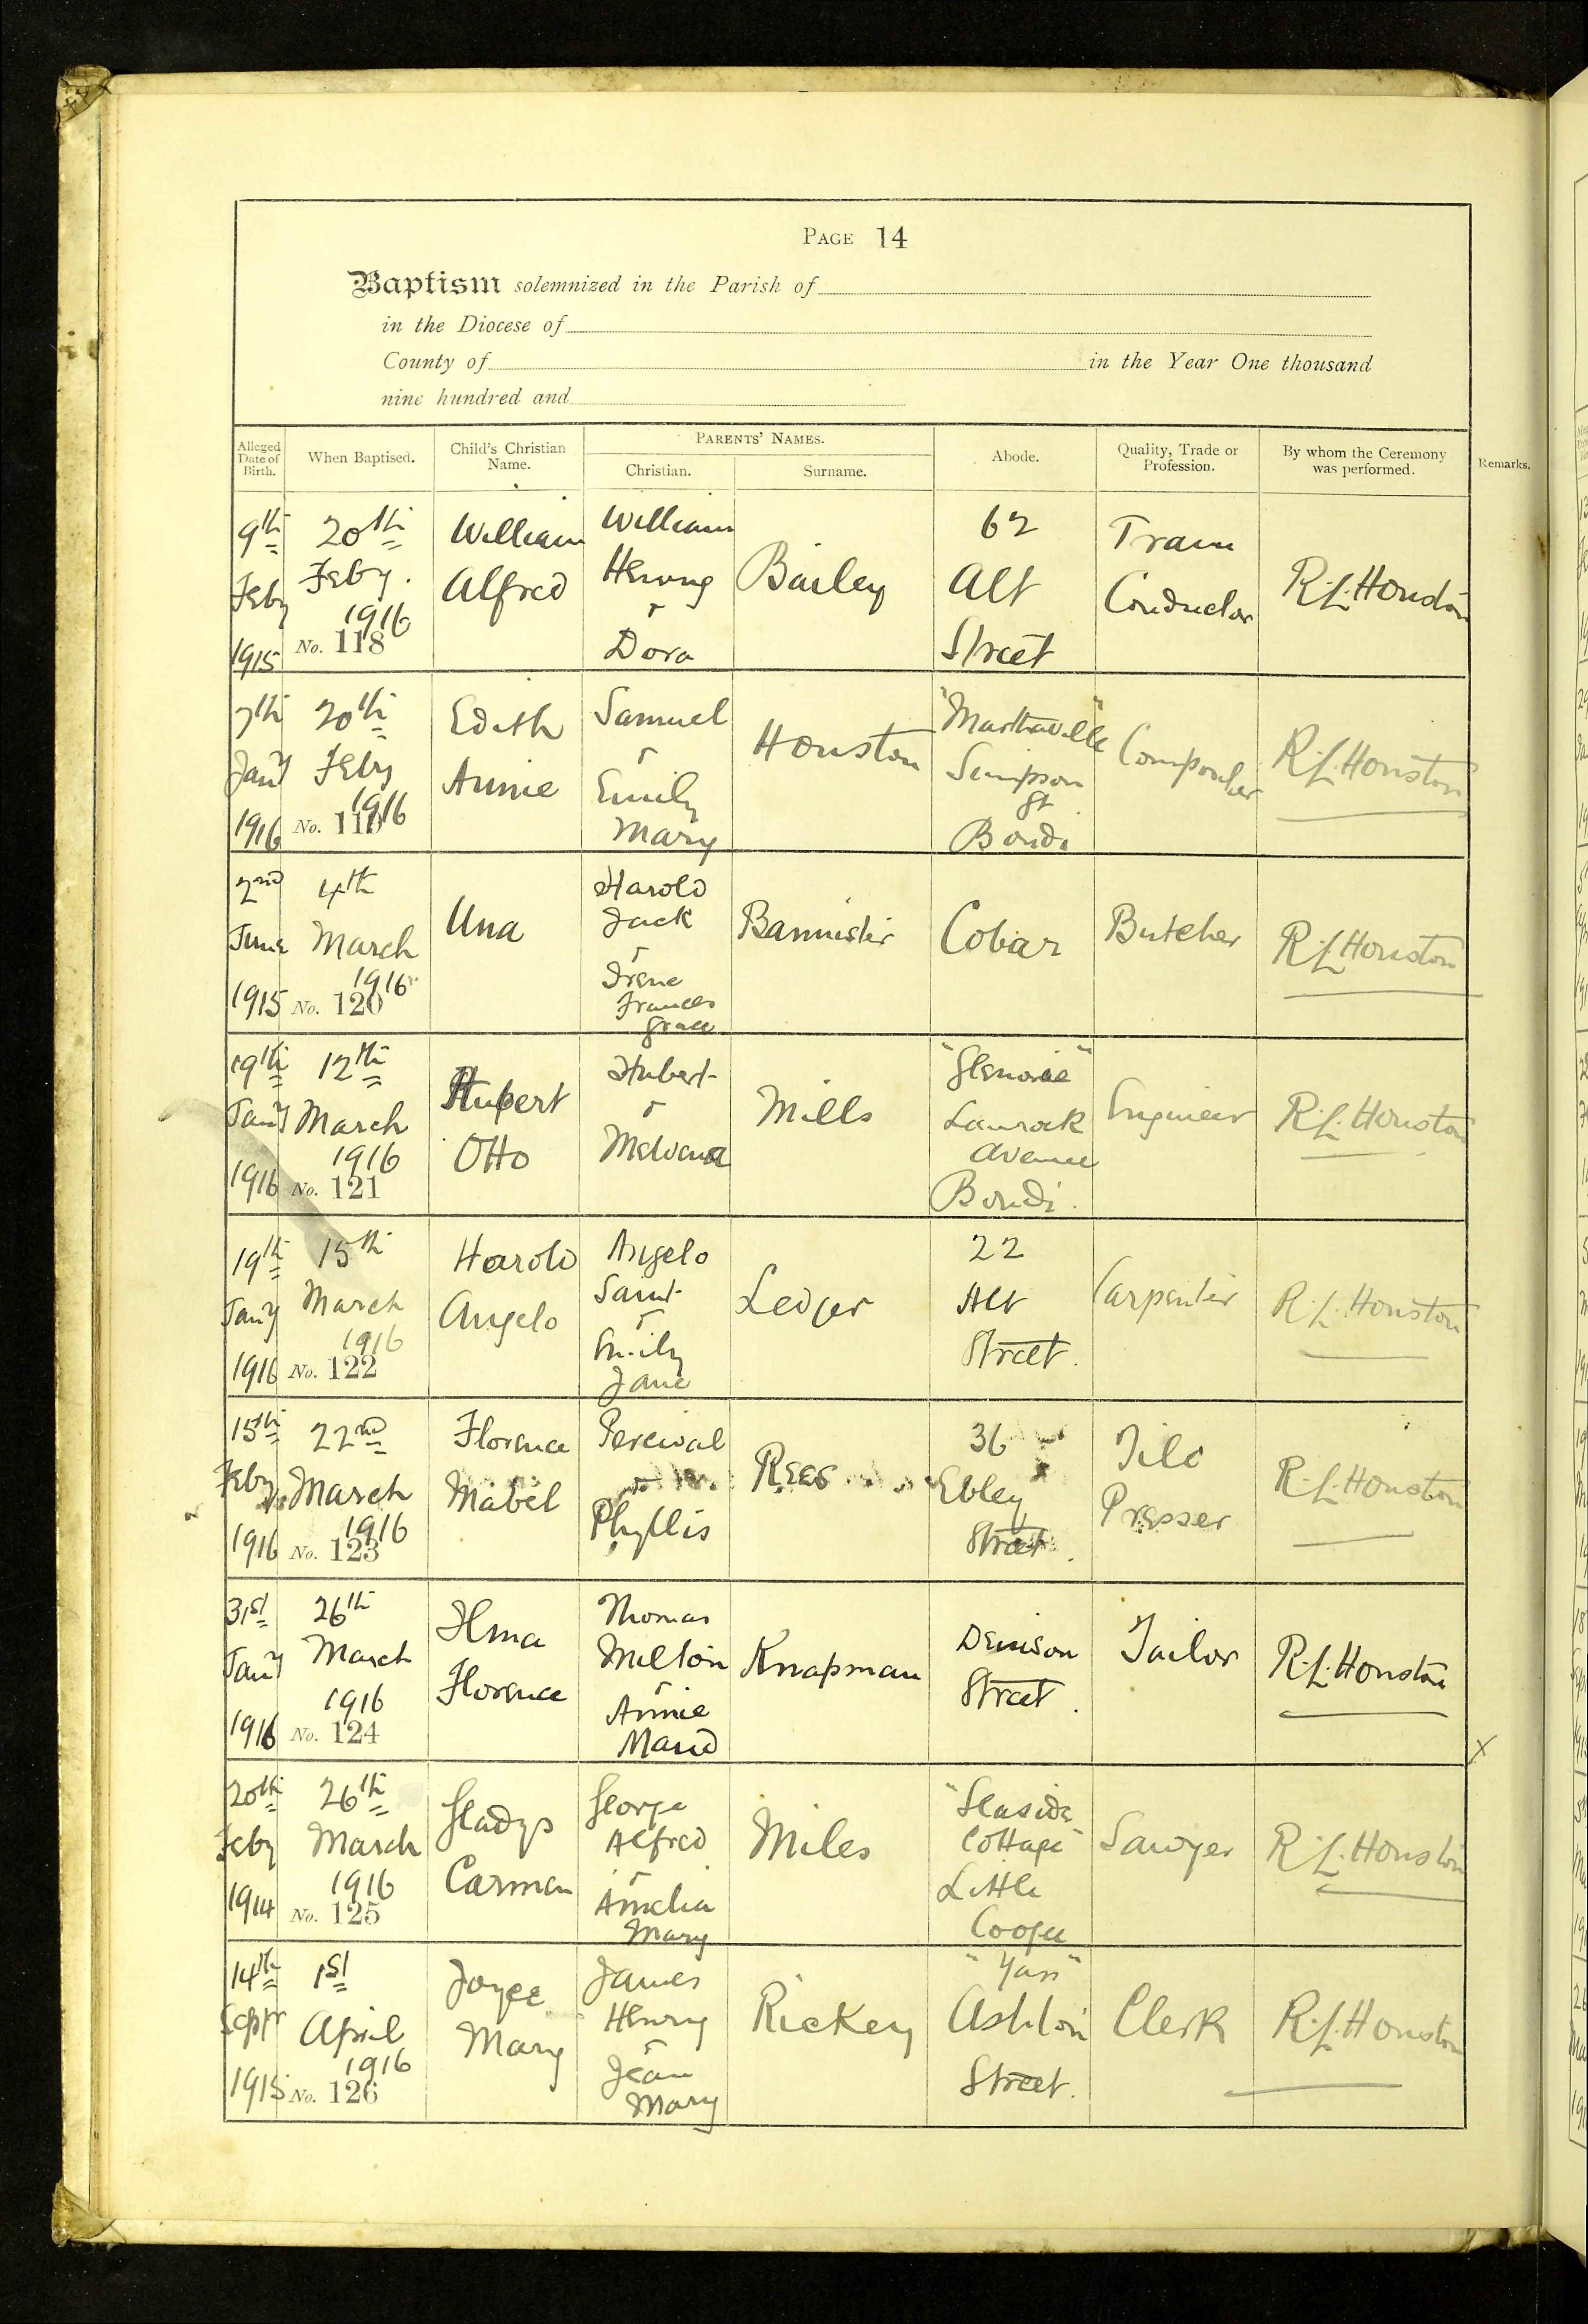 PAGE 14
Baptism solemnized in the Parish of
in the Diocese of
County of in the Year One thousand
nine hundred and
Alleged Date of Birth. When Baptised. Child's Christian Name. PARENTS' NAMES. Christian. Surname. Abode. Quality, Trade or Profession. By whom the Ceremony was performed. Remarks.
9th Feby 1915
20th Feby. 1916
No. 118
William Alfred
William Henry & Dora
Bailey
62 Alt Street
Tram Conductor
R.L. Houston
7th Jany 1916
20th Feby 1916
No. 119
Edith Annie
Samuel & Emily Mary
Houston
"Marthaville" Simpson St Bondi
Compositer
R.L. Houston
2nd June 1915
4th March 1916
No. 120
Una
Harold Jack & Irene Frances Grace
Bannister
Cobar
Butcher
R.L. Houston
19th Jany 1916
12th March 1916
No. 121
Hubert Otto
Hubert &
Mills
Avenue Bondi.
Engineer
R.L. Houston
19th Jany 1916
15th March 1916
No. 122
Harold Angelo
Angelo Saint & Emily Jane
Ledger
22 Alt Street.
Carpenter
R.L. Houston
15th Feby 1916
22nd March 1916
No. 123
Florence Mabel
Percival & Phyllis
Rees
36 Ebley Street.
Tile Presser
R.L. Houston
31st Jany 1916
26th March 1916
No. 124
Ilma Florence
Thomas Milton & Annie Maud
Knapman
Denison Street.
Tailor
R.L. Houston
X
20th Feby 1914
26th March 1916
No. 125
Gladys Carmen
George Alfred & Amelia Mary
Miles
"Seaside Cottage" Little Coogee
Sawyer
R.L. Houston
14th Septr 1915
1st April 1916
No. 126
Joyce Mary
James Henry & Jean Mary
Rickey
"Yass" Ashton Street.
Clerk
R.L. Houston